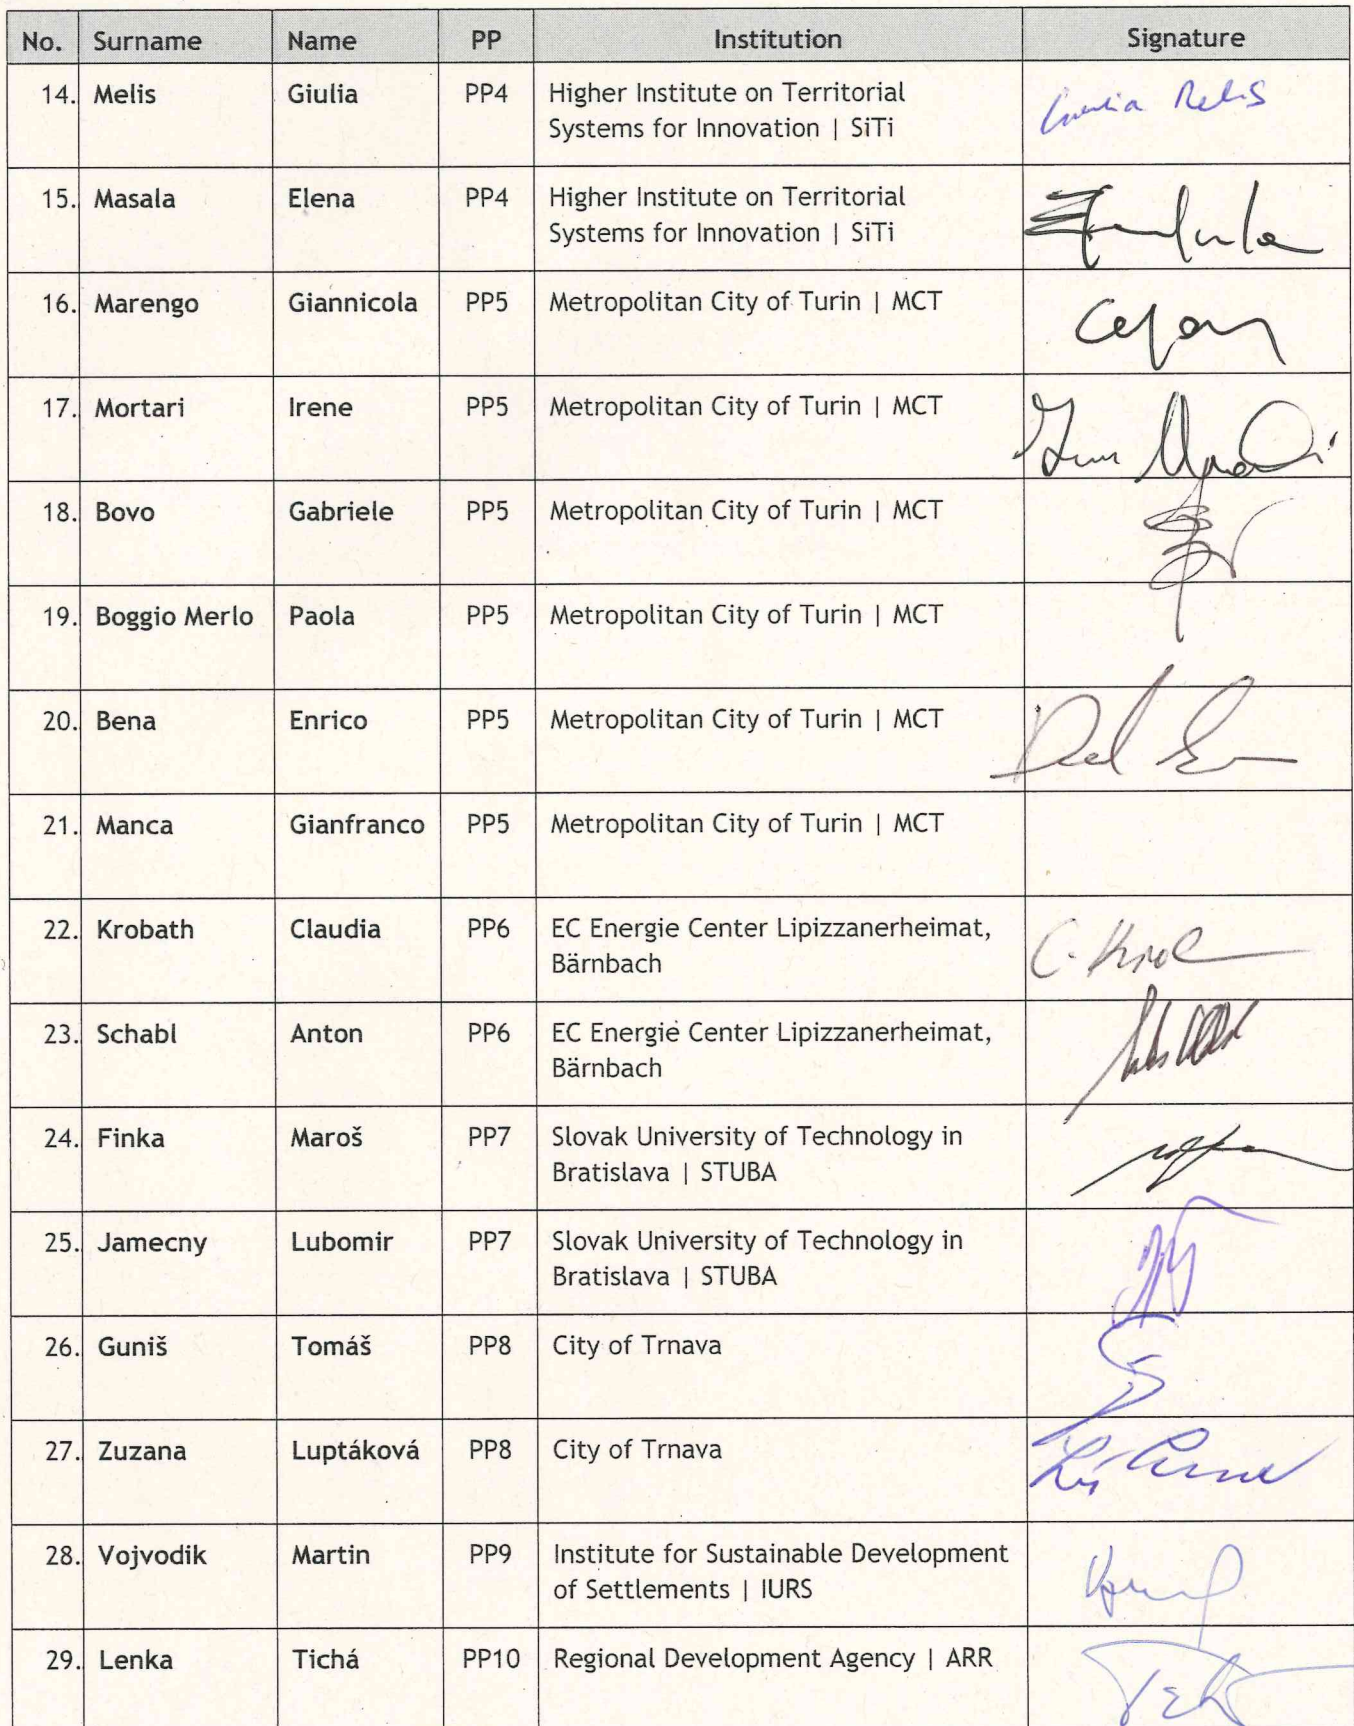 No. Surname Name PP Institution Signature
14. Melis Giulia PP4 Higher Institute on Territorial
Systems for Innovation | SiTi
15. Masala Elena PP4 Higher Institute on Territorial
Systems for Innovation | SiTi
16. Marengo Giannicola PP5 Metropolitan City of Turin | MCT
17. Mortari Irene PP5 Metropolitan City of Turin | MCT
18. Bovo Gabriele PP5 Metropolitan City of Turin | MCT
19. Boggio Merlo Paola PP5 Metropolitan City of Turin | MCT
20. Bena Enrico PP5 Metropolitan City of Turin | MCT
21. Manca Gianfranco PP5 Metropolitan City of Turin | MCT
22. Krobath Claudia PP6 EC Energie Center Lipizzanerheimat,
Bärnbach
23. Schabl Anton PP6 EC Energie Center Lipizzanerheimat,
Bärnbach
24. Finka Maroš PP7 Slovak University of Technology in
Bratislava | STUBA
25. Jamecny Lubomir PP7 Slovak University of Technology in
Bratislava | STUBA
26. Guniš Tomáš PP8 City of Trnava
27. Zuzana Luptáková PP8 City of Trnava
28. Vojvodik Martin PP9 Institute for Sustainable Development
of Settlements | IURS
29. Lenka Tichá PP10 Regional Development Agency | ARR